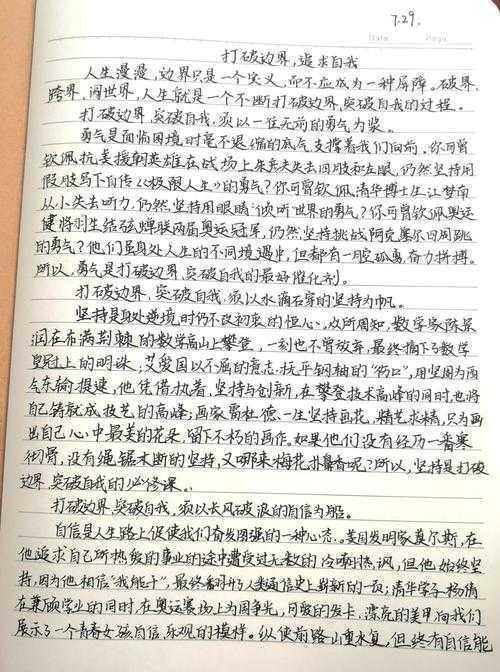 7.29.
Date
Page
打破边界,追求自我
人生漫漫,边界只是一个定义,而不应成为一种屏障。破界、
跨界、阔世界,人生就是一个不断打破边界,突破自我的过程。
打破边界,突破自我,须以一往无前的勇气为桨。
勇气是面临困境时毫不退缩的底气,支撑着我们向前。你可曾
钦佩抗美援朝英雄在战场上失去四肢和左眼,仍然坚持用
假肢写下自传《极限人生》的勇气?你可曾钦佩清华博士生江梦南
从小失去听力,仍然坚持用眼睛"倾听"世界的勇气?你可曾钦佩奥运
健将羽生结弦蝉联两届奥运冠军,仍然坚持挑战阿克塞尔四周跳
的勇气?他们虽身处人生的不同境遇中,但都有一腔孤勇,奋力拼搏。
所以,勇气是打破边界,突破自我的最好催化剂。
打破边界,突破自我,须以水滴石穿的坚持为帆。
坚持是身处逆境时仍不改初衷的恒心。众所周知,数学家陈景
润在布满荆棘的数学高山上攀登,一刻也不曾放弃,最终摘下了数学
皇冠上的明珠,艾爱国以不屈的意志,抚平钢铀的"伤口",用坚固为西
气东输提速,他凭借执着,坚持与创新,在攀登技术高峰的同时,也将
自己铸就成技艺的高峰;画家雷杜德一生坚持画花,精艺求精,只为画
出自己心中最美的花朵,留下不朽的画作。如果他们没有经历一番寒
彻骨,没有绳锯木断的坚持,又哪来梅花扑鼻香呢?所以,坚持是打破
边界,突破自我的必修课。
打破边界,突破自我,须以长风破浪的自信为船。
自信是人生路上促使我们奋发图强的一种心态。美国发明家莫尔斯,在
他追求自己所热爱的事业的途中遭受过无数的冷嘲热讽,但他始终坚
持,因为他相信"我能行",最终翻开了人类通信史上崭新的一页;清华学子杨倩
在兼顾学业的同时,在奥运赛场上为国争光,可爱的发卡,漂亮的美甲向我们
展示了一个青春女孩自信、乐观的模样。纵使前路山重水复,但终有自信能